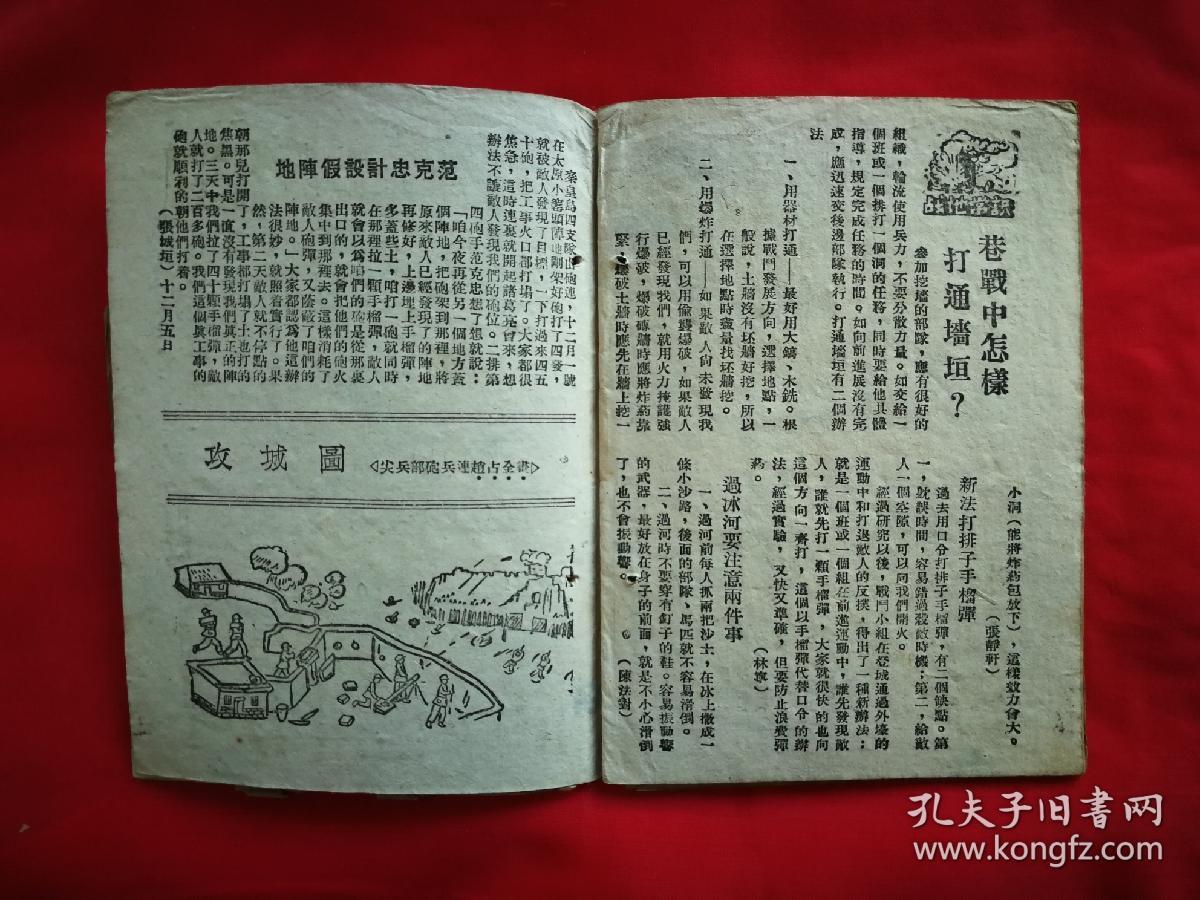 戰地常識
巷戰中怎樣
打通墻垣？
參加挖墻的部隊，應有很好的
組織，輪流使用兵力，不要分散力量。如交給一
個班或一個排打一個洞的任務，同時要給他具體
指導，規定完成任務的時間。如向前進展沒有完
成，應迅速交後邊部隊執行。打通墻垣有二個辦
法
一、用器材打通——最好用大鎬、木銑。根
據戰鬥發展方向，選擇地點，一
般說，土牆沒有坯牆好挖，所以
在選擇地點時盡量找坯牆挖。
二、用爆炸打通——如果敵人尚未發現我
們，可以用偷襲爆破，如果敵人
已經發現我們，就用火力掩護強
行爆破，爆破磚牆時應將炸葯靠
緊，爆破土牆時應先在牆上挖一
小洞（能將炸葯包放下），這樣效力會大。
（張靜軒）
新法打排子手榴彈
過去用口令打排子手榴彈，有二個缺點。第
一，就誤時間，容易錯過殺敵時機；第二，給敵
人一個空隙，可以向我們開火。
經過研究以後，戰鬥小組在登城通過外壕的
運動中和打退敵人的反撲，得出了一種新辦法：
就是一個班或一個組在前進運動中，誰先發現敵
人，誰就先打一顆手榴彈，大家就很快的也向
這個方向一齊打，這個以手榴彈代替口令的辦
法，經過實驗，又快又準確，但要防止浪費彈
葯。
（林寧）
過冰河要注意兩件事
一、過河前每人抓兩把沙土，在冰上撒成一
條小沙路，後面的部隊、馬匹就不容易滑倒。
二、過河時不要穿有釘子的鞋。容易振動響
的武器，最好放在身子的前面，就是不小心滑倒
了，也不會振動響。
（陳法對）
地陣假設計忠克范
秦皇島四支隊山砲連，十二月一號
在太原小窰頭陣地剛架好砲打了四發，
就被敵人發現了目標，一下打過來四五
十砲，把工事火口都打塌了。大家都很
焦急，這時連裏就開起諸葛亮會來，想
辦法不讓敵人發現我們的砲位。二排第
四砲手范克忠想了想就說：
「咱今夜再從另一個地方蓋
個陣地，把砲架到那裡，將
原來敵人已經發現了的陣地
再修好，上邊埋上手榴彈，
多蓋些土，咱打一砲就同時
在那裡拉一顆手榴彈，敵人
就會以爲咱們的砲是從那裏
出口的，就會把他們的砲火
集中到那裡去。這樣前耗了
敵人砲彈，又蔭蔽了咱們的
陣地。」大家都認爲他這辦
法很妙，就照着實行了。果
然，第二天敵人就不停點的
朝那兒打開了，工事都打塌了土也打
焦黑。可是一直沒有發現我們眞正的陣
地。三天中我們拉了四十顆手榴彈，敵
人就打了二百多砲。我們這個眞工事的
砲就順利的朝他們打着。
（張城垣）十二月五日
攻城圖
◁尖兵部砲兵連趙占全畫▷
孔夫子旧书网
www.kongfz.com